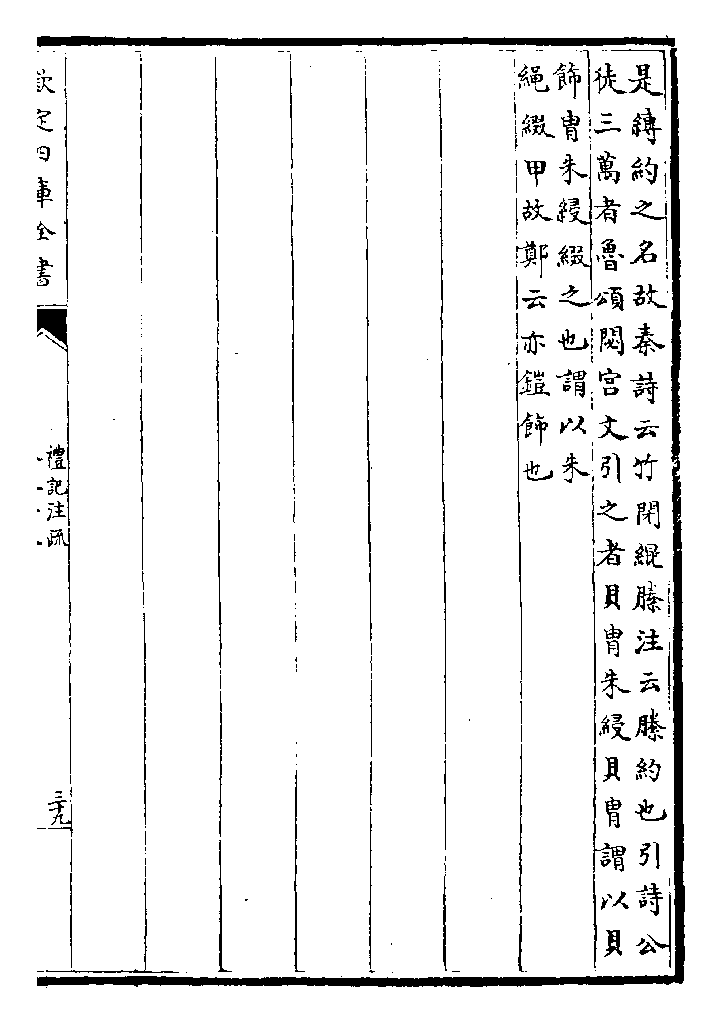 是縳約之名故秦詩云竹閉緄縢注云縢約也引詩公
徒三萬者魯頌閟宮文引之者貝胄朱綅貝胄謂以貝
飾胄朱綅綴之也謂以朱
繩綴甲故鄭云亦鎧飾也
欽定四庫全書
禮記注疏
三十九